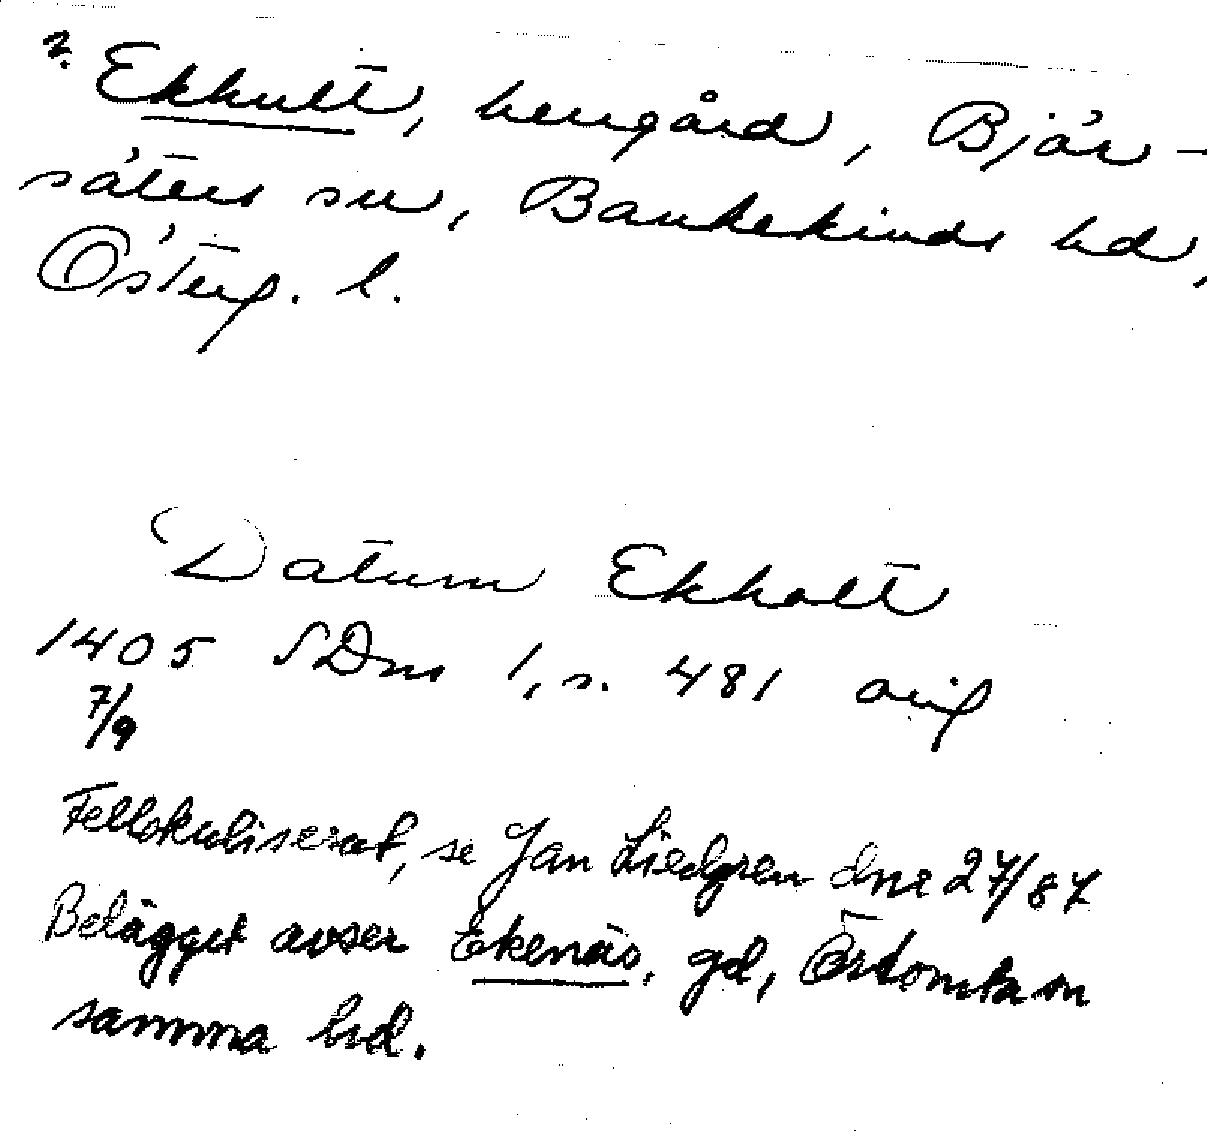 ? Ekhult, herrgård, Bjär-
säters sn, Bankekinds hd,
Österg. l.
Datum Ekholt
1405 SDns 1, s. 481 orig
7/9
Fellokaliserat, se Jan Liedgren dnr 27/87
Belägget avser Ekenäs, gd, Örtomta sn
samma hd.